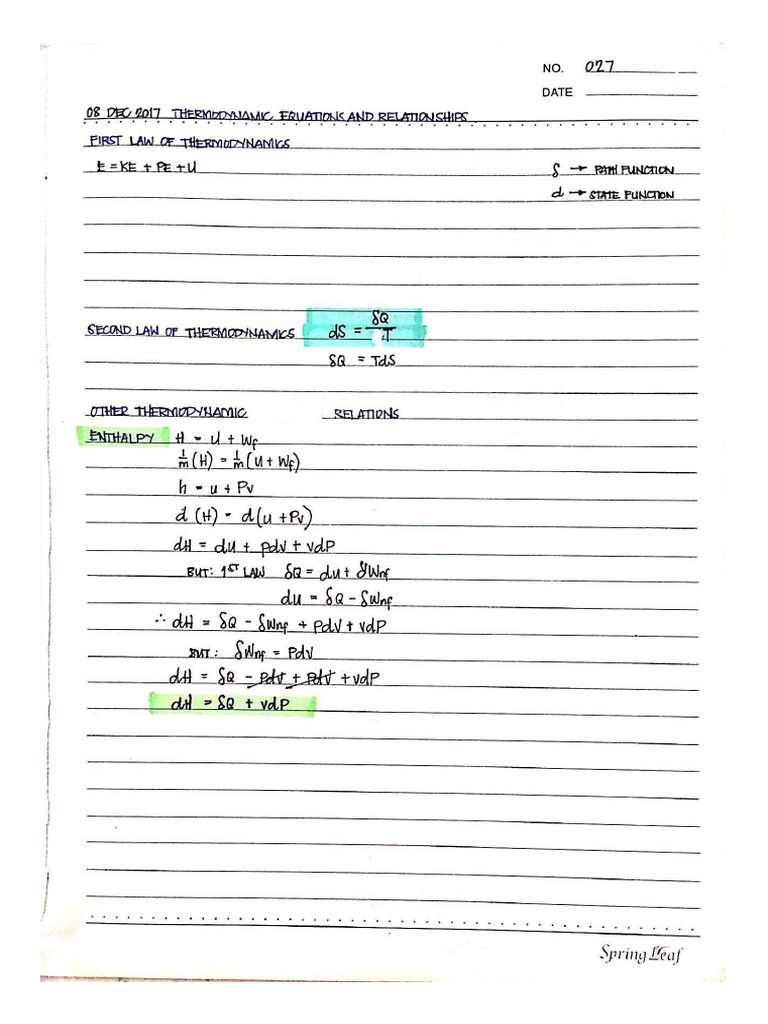 NO. 027
DATE
08 DEC 2017 THERMODYNAMIC EQUATIONS AND RELATIONSHIPS
FIRST LAW OF THERMODYNAMICS
E = KE + PE + U
δ → PATH FUNCTION
d → STATE FUNCTION
SECOND LAW OF THERMODYNAMICS dS = δQ/T
δQ = TdS
OTHER THERMODYNAMIC RELATIONS
ENTHALPY H = U + Wf
1/m (H) = 1/m (U + Wf)
h = u + Pv
d (H) = d(u + Pv)
dH = du + pdv + vdP
BUT: 1ST LAW δQ = du + δWnf
du = δQ - δWnf
∴ dH = δQ - δWnf + PdV + VdP
BUT: δWnf = PdV
dH = δQ - PdV + PdV + VdP
dH = δQ + VdP
Spring Leaf